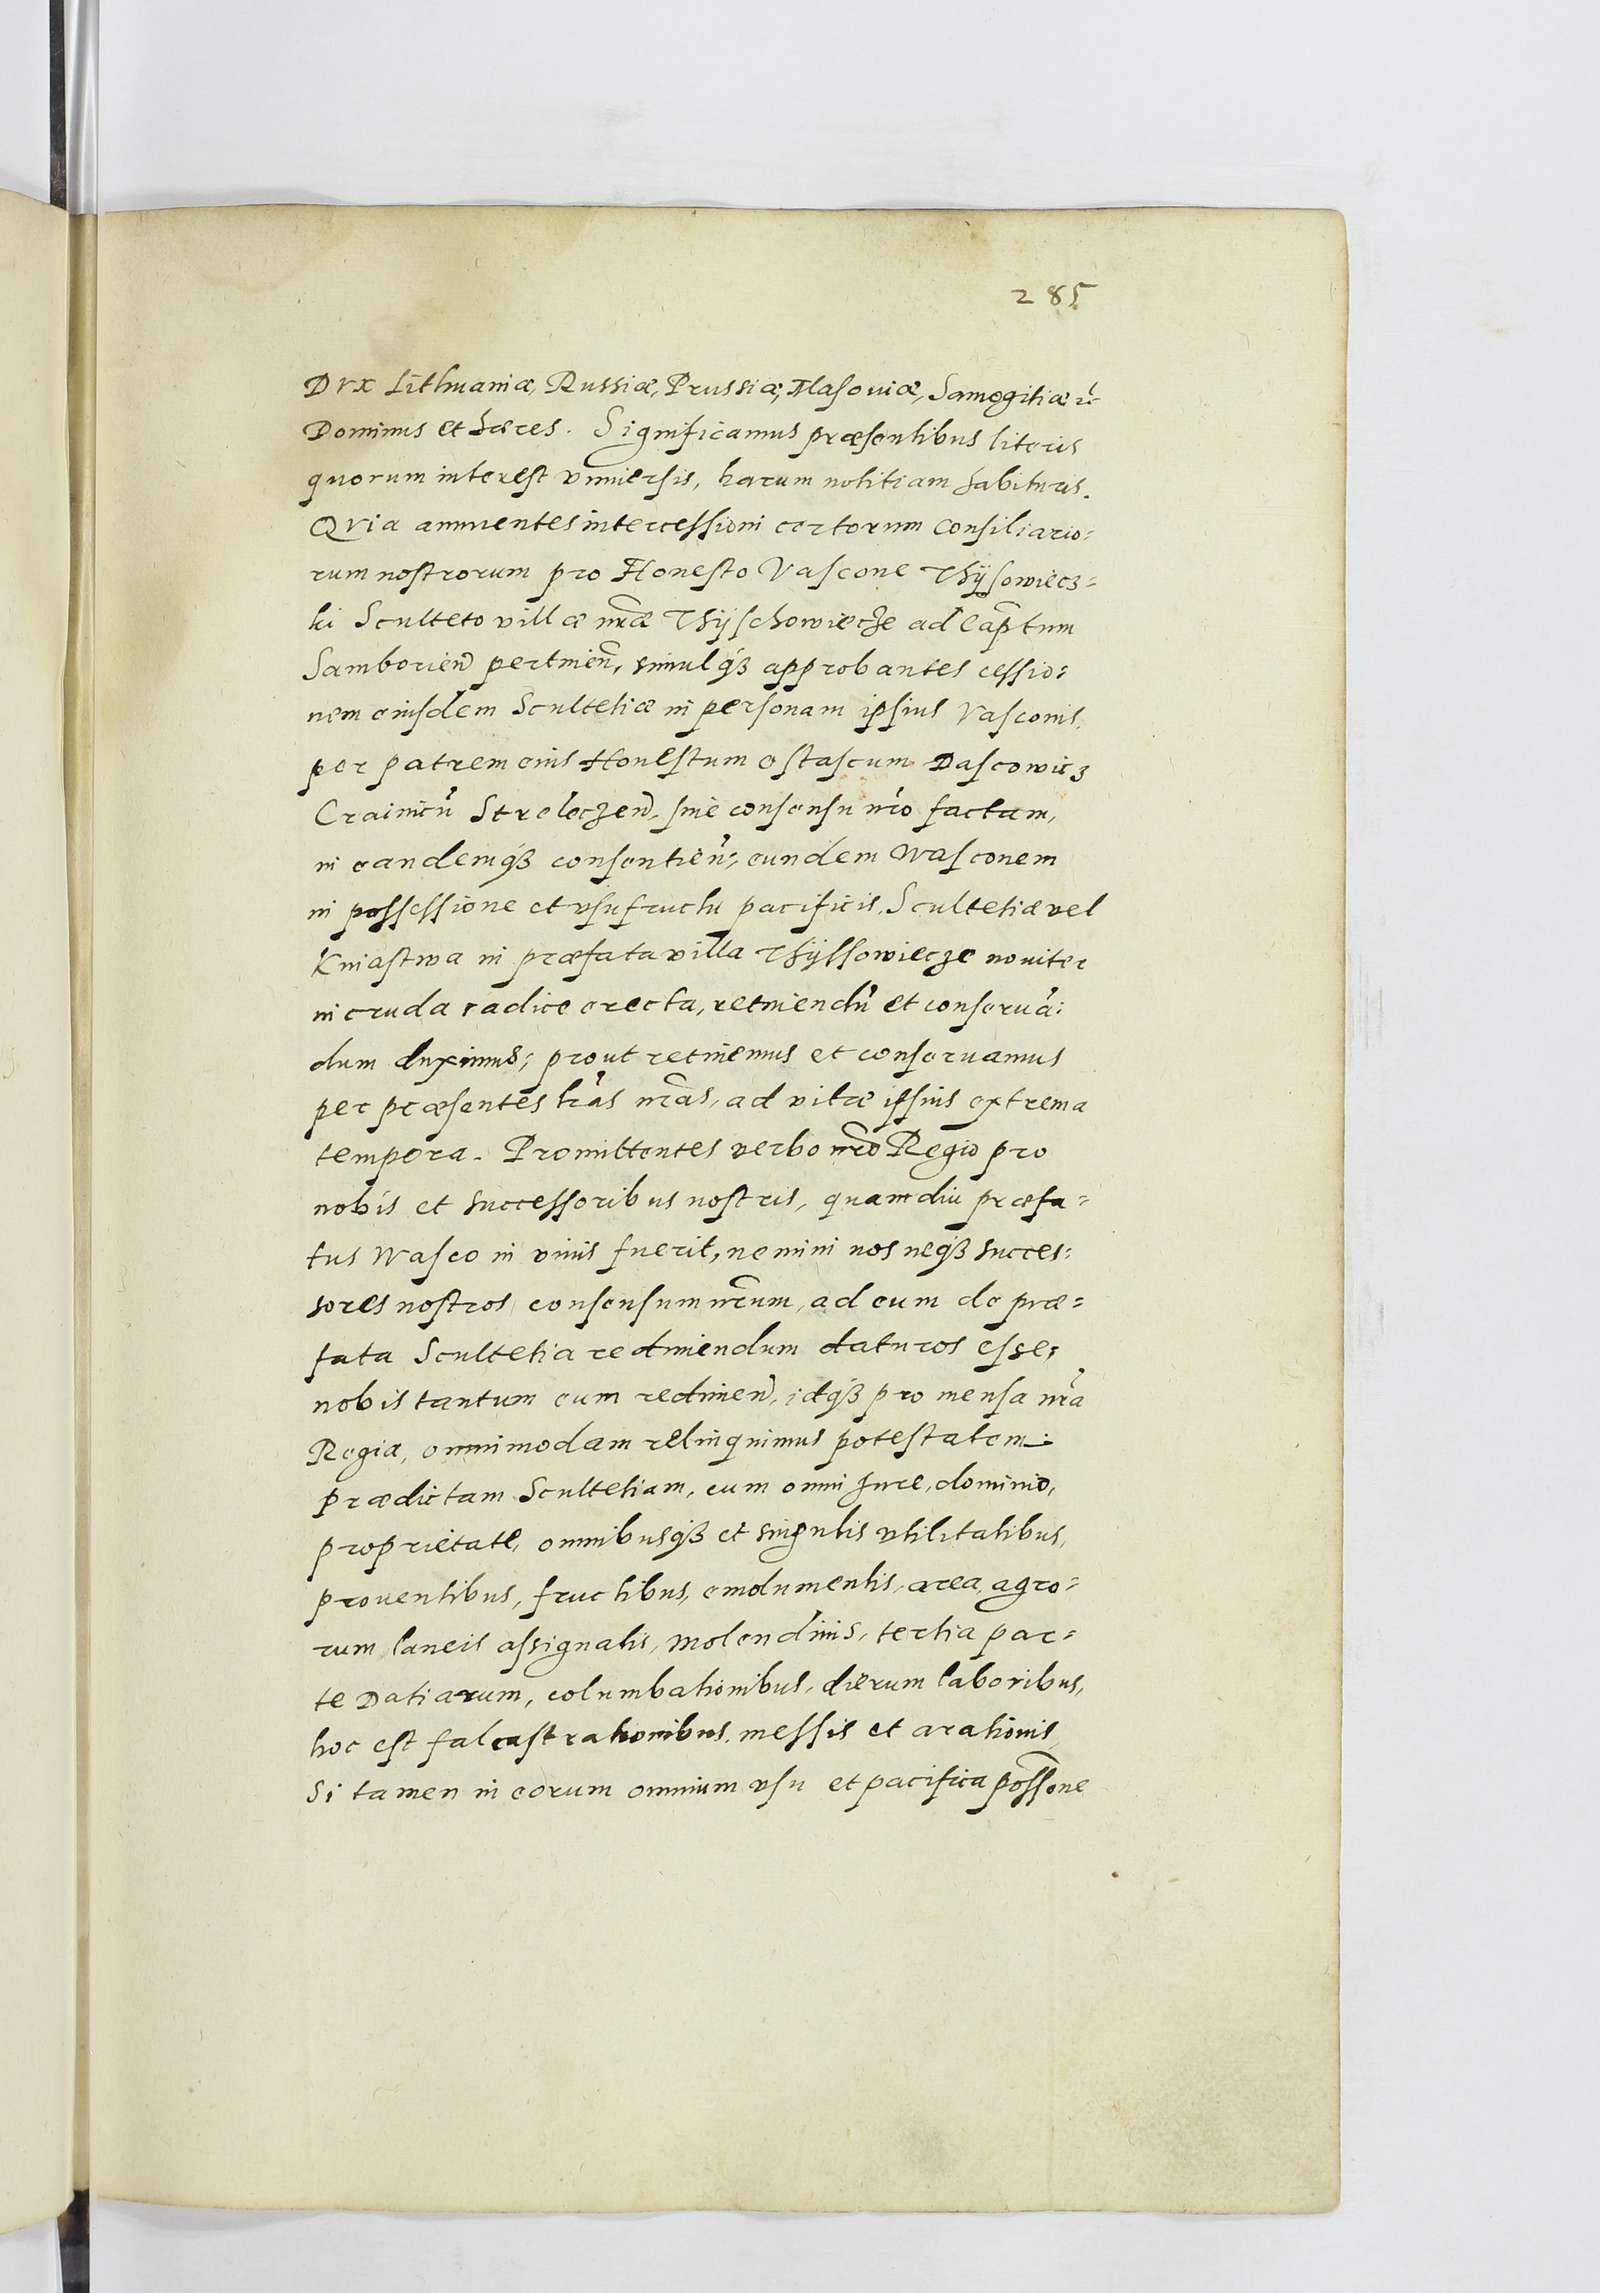 285
Dvx Lithuaniæ, Russiæ, Prussiæ, Masouiæ, Samogitiæ
Dominus et hæres. Significamus præsentibus literis
quorum interest vniuersis, harum notitiam habituris.
Qvia annuentes intercessioni certorum consiliario:
rum nostrorum pro Honesto Vascone Thÿsowiecz=
ki Sculteto villæ nr̃æ Thÿschowiecze ad Cap̃tum
Samborieñ pertineñ, simulqȝ approbantes cessio:
nem eiusdem Scultetiæ in personam ipsius Vasconis,
per patrem eius Honestum ostascum Dascowicz
Crainicũ Streleczeñ, sine consensu nr̃o factam,
in eandemqȝ consentieñ: eundem Wasconem
in possessione et vsufructu pacificis, Scultetiæ vel
Kniastwa in præfata villa Thÿssowiecze nouiter
in cruda radice erecta, retinendũ et conseruã:
dum duximus; prout retinemus et conseruamus
per præsentes lr̃as nr̃as, ad vitæ ipsius extrema
tempora. Promittentes verbo nr̃o Regio pro
nobis et successoribus nostris, quamdiu præfa=
tus Wasco in viuis fuerit, nemini nos neqȝ succes:
sores nostros consensum nr̃um, ad eum de præ=
fata Scultetia redimendum daturos esse;
nobis tantum eum redimeñ, idqȝ pro mensa nr̃a
Regia, omnimodam relinquimus potestatem.
prædictam Scultetiam, cum omni Jure, dominio,
proprietate, omnibusqȝ et singulis vtilitatibus,
prouentibus, fructibus, emolumentis, area, agro=
rum laneis assignatis, molendinis, tertia par=
te Datiarum, columbationibus, dierum laboribus,
hoc est falcastrationibus, messis et arationis,
Si tamen in eorum omnium vsu et pacifica posse͂one